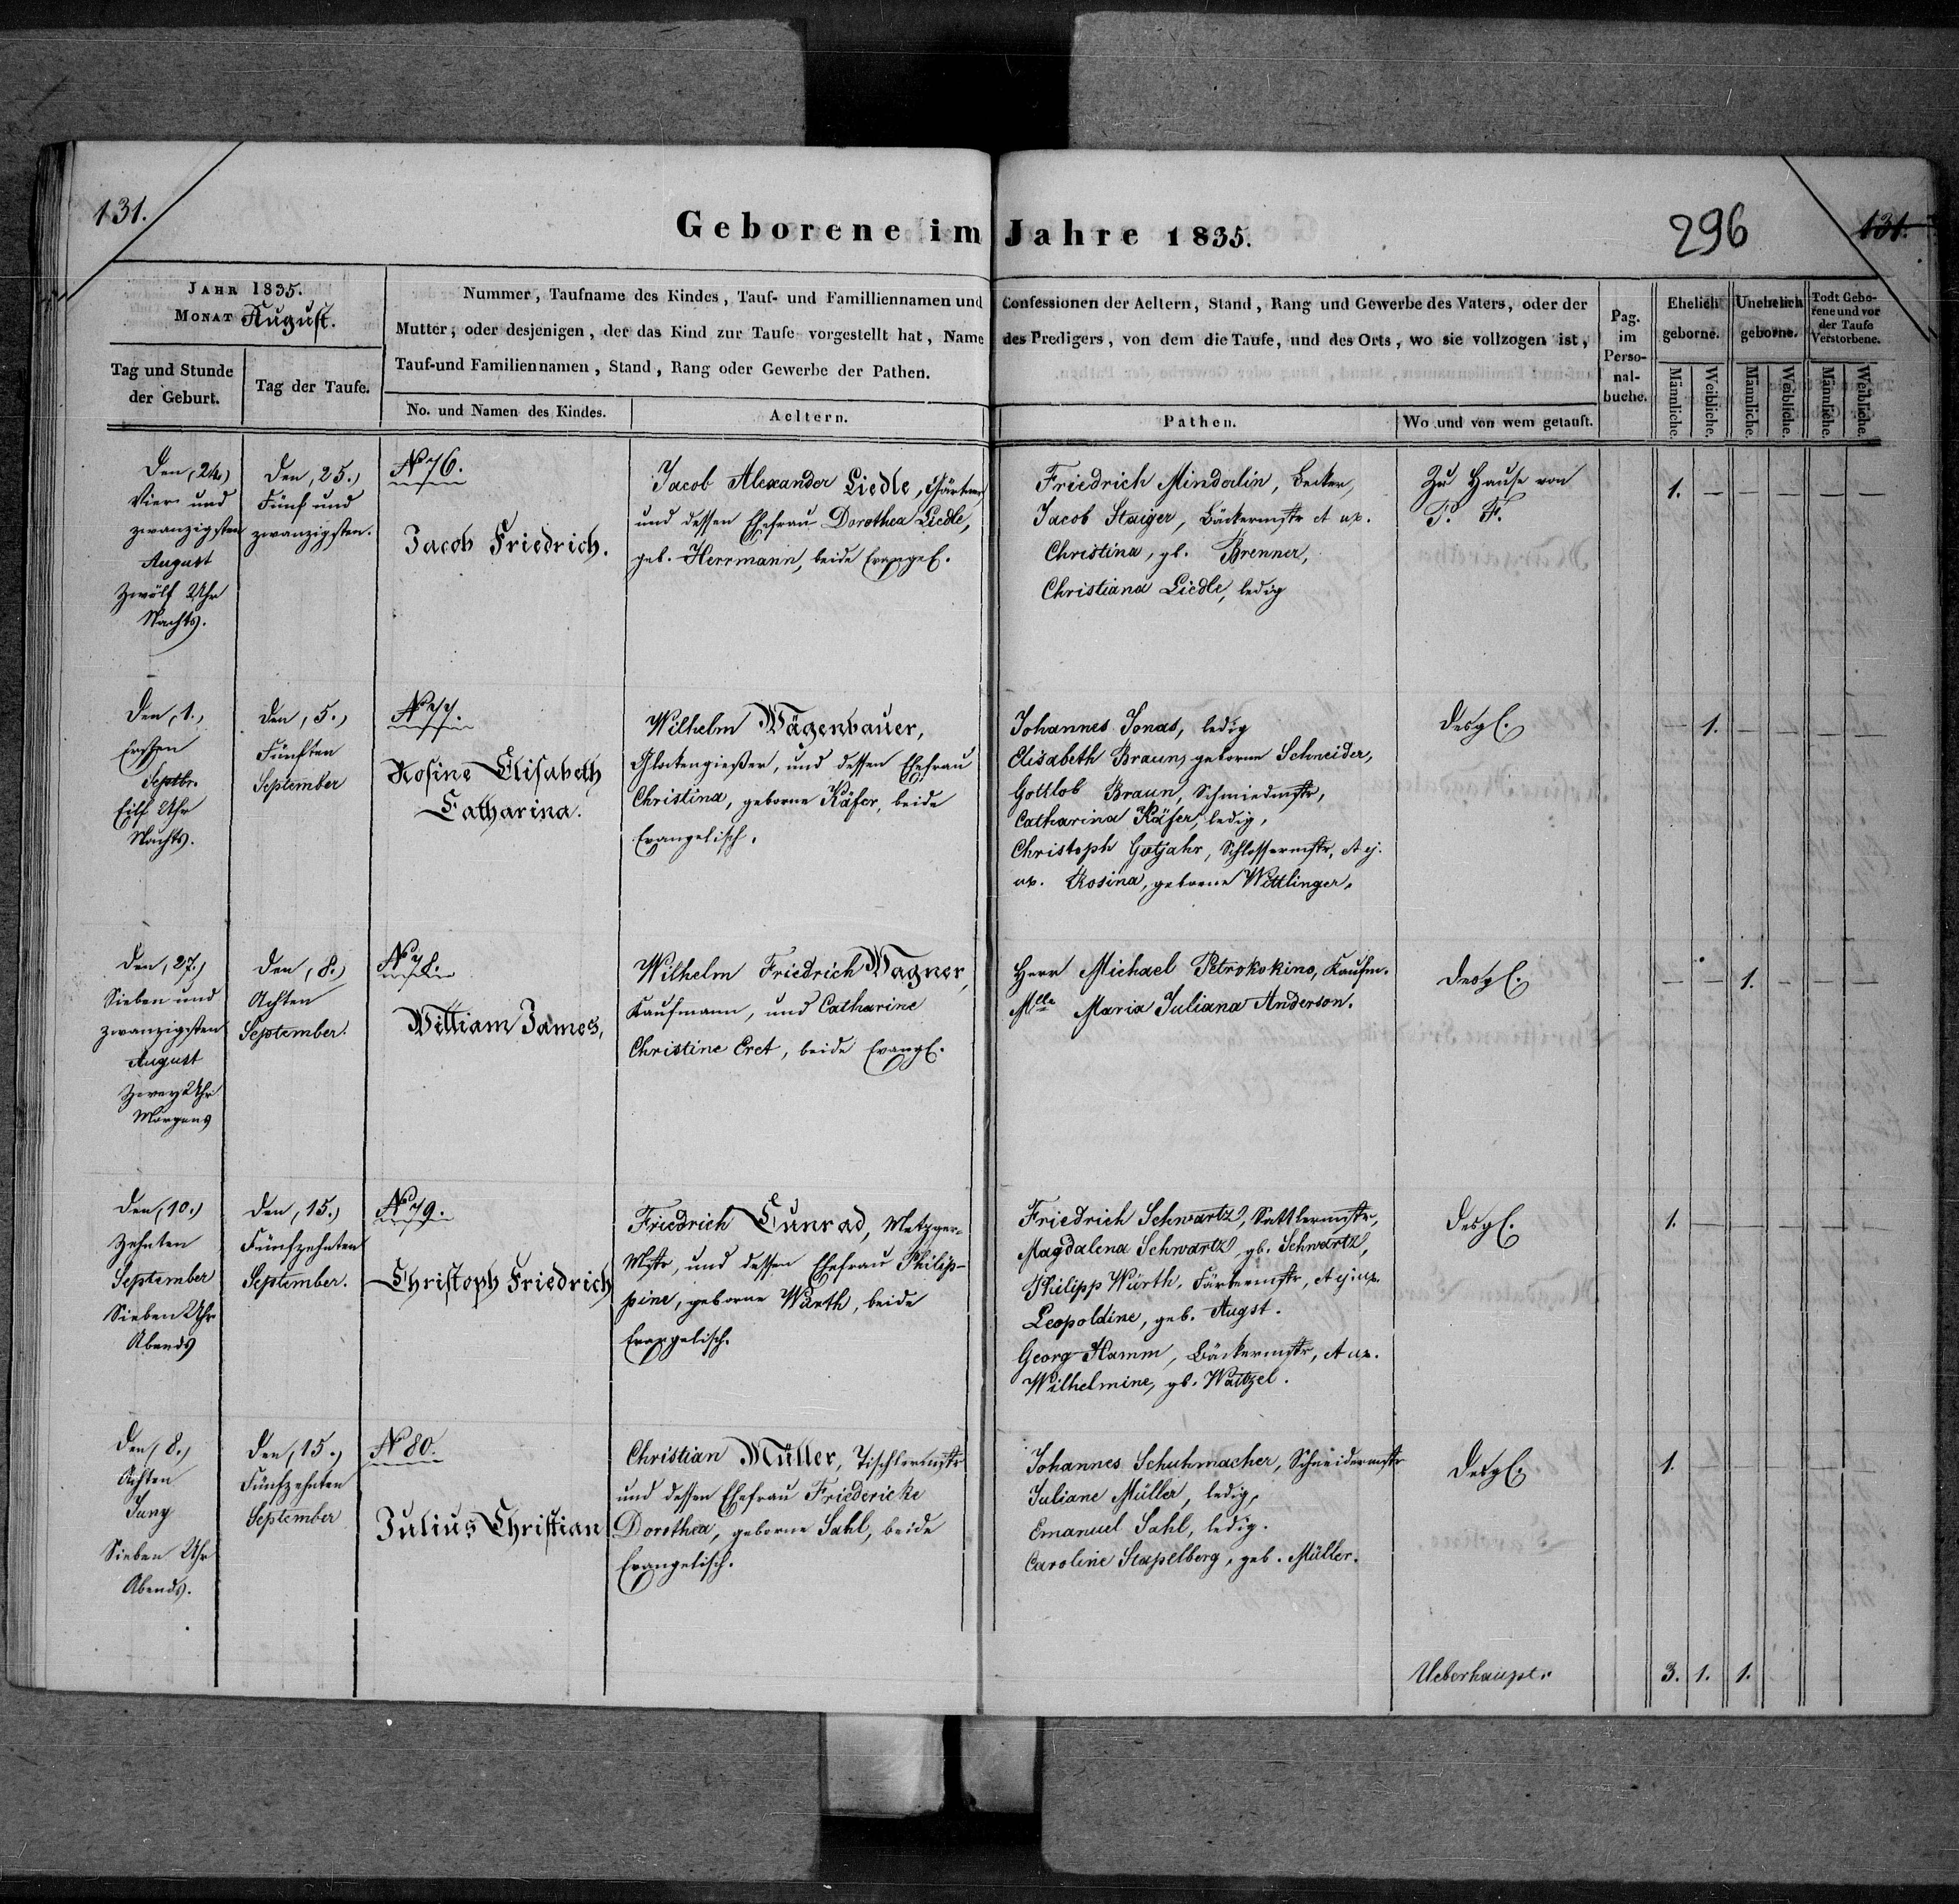 131.
Geborene im Jahre 1835.
296
131.
JAHR 1835.
MONAT August.
Tag und Stunde
der Geburt.
Tag der Taufe.
Nummer, Taufname des Kindes, Tauf- und Familliennamen und
Mutter, oder desjenigen, der das Kind zur Taufe vorgestellt hat, Name
Tauf-und Familiennamen, Stand, Rang oder Gewerbe der Pathen.
No. und Namen des Kindes.
Aeltern.
Confessionen der Aeltern, Stand, Rang und Gewerbe des Vaters, oder der
des Predigers, von dem die Taufe, und des Orts, wo sie vollzogen ist,
Pathen.
Wo und von wem getauft.
Pag.
im
Perso-
nal-
buche.
Ehelich
geborne.
Unehelich
geborne.
Todt Gebo-
rene und vor
der Taufe
Verstorbene.
Männliche.
Weibliche.
Männliche.
Weibliche.
Männliche.
Weibliche.
Den (24.)
Vier und
zwanzigsten
August
Zwölf Uhr
Nachts.
Den (25.)
Fünf und
zwanzigsten.
No 76.
Jacob Friedrich.
Jacob Alexander Liedle, Gärtner
und dessen Ehefrau Dorothea Liedle,
geb. Herrmann, beide Evangel.
Friedrich Mindalin, Becker,
Jacob Staiger, Bäckermstr et ux.
Christina, gb. Brenner,
Christiana Liedle, ledig
Zu Hause von
P. F.
1. — — — — —
Den (1.)
Ersten
Septbr.
Eilf Uhr
Nachts.
Den (5.)
Fünften
September
No 77.
Rosine Elisabeth
Catharina.
Wilhelm Wägenbauer,
Glockengießer, und dessen Ehefrau
Christina, geborne Käfer, beide
Evangelisch.
Johannes Jonas, ledig
Elisabeth Braun, geborne Schneider,
Gottlob Braun, Schmiedmstr,
Catharina Käfer, ledig,
Christoph Gutjahr, Schlossermstr, et ej.
ux. Rosina, geborne Wittlinger.
Desgl.
— 1. — — — —
Den (27.)
Sieben und
zwanzigsten
August
Zwey Uhr
Morgens
Den (8.)
Achten
September.
No 78.
William James,
Wilhelm Friedrich Wagner,
Kaufmann, und Catharine
Christine Eret, beide Evangl.
Herr Michael Petrokokino, Kaufm.
Mlle Maria Juliana Anderson.
Desgl.
— — 1. — — —
Den (10.)
Zehnten
September
Sieben Uhr
Abends
Den (15.)
Fünfzehnten
September.
No 79.
Christoph Friedrich
Friedrich Cunrad, Metzger-
Mstr, und dessen Ehefrau Philip-
pine, geborne Würth, beide
Evangelisch.
Friedrich Schwartz, Sattlermstr,
Magdalena Schwartz, gb. Schwartz,
Philipp Würth, Färbermstr, et ej. ux.
Leopoldine, geb. Augst.
Georg Hamm, Bäckermstr, et ux.
Wilhelmine, gb. Waitzel.
Desgl.
1. — — — — —
Den (8.)
Achten
Juny
Sieben Uhr
Abends.
Den (15.)
Fünfzehnten
September
No 80.
Julius Christian
Christian Müller, Tischlermstr
und dessen Ehefrau Friedericke
Dorothea, geborne Sahl, beide
Evangelisch.
Johannes Schuhmacher, Schneidermstr
Juliane Müller, ledig,
Emanuel Sahl, ledig.
Caroline Stapelberg, geb. Müller.
Desgl.
1. — — — — —
Ueberhaupt. 3. 1. 1.